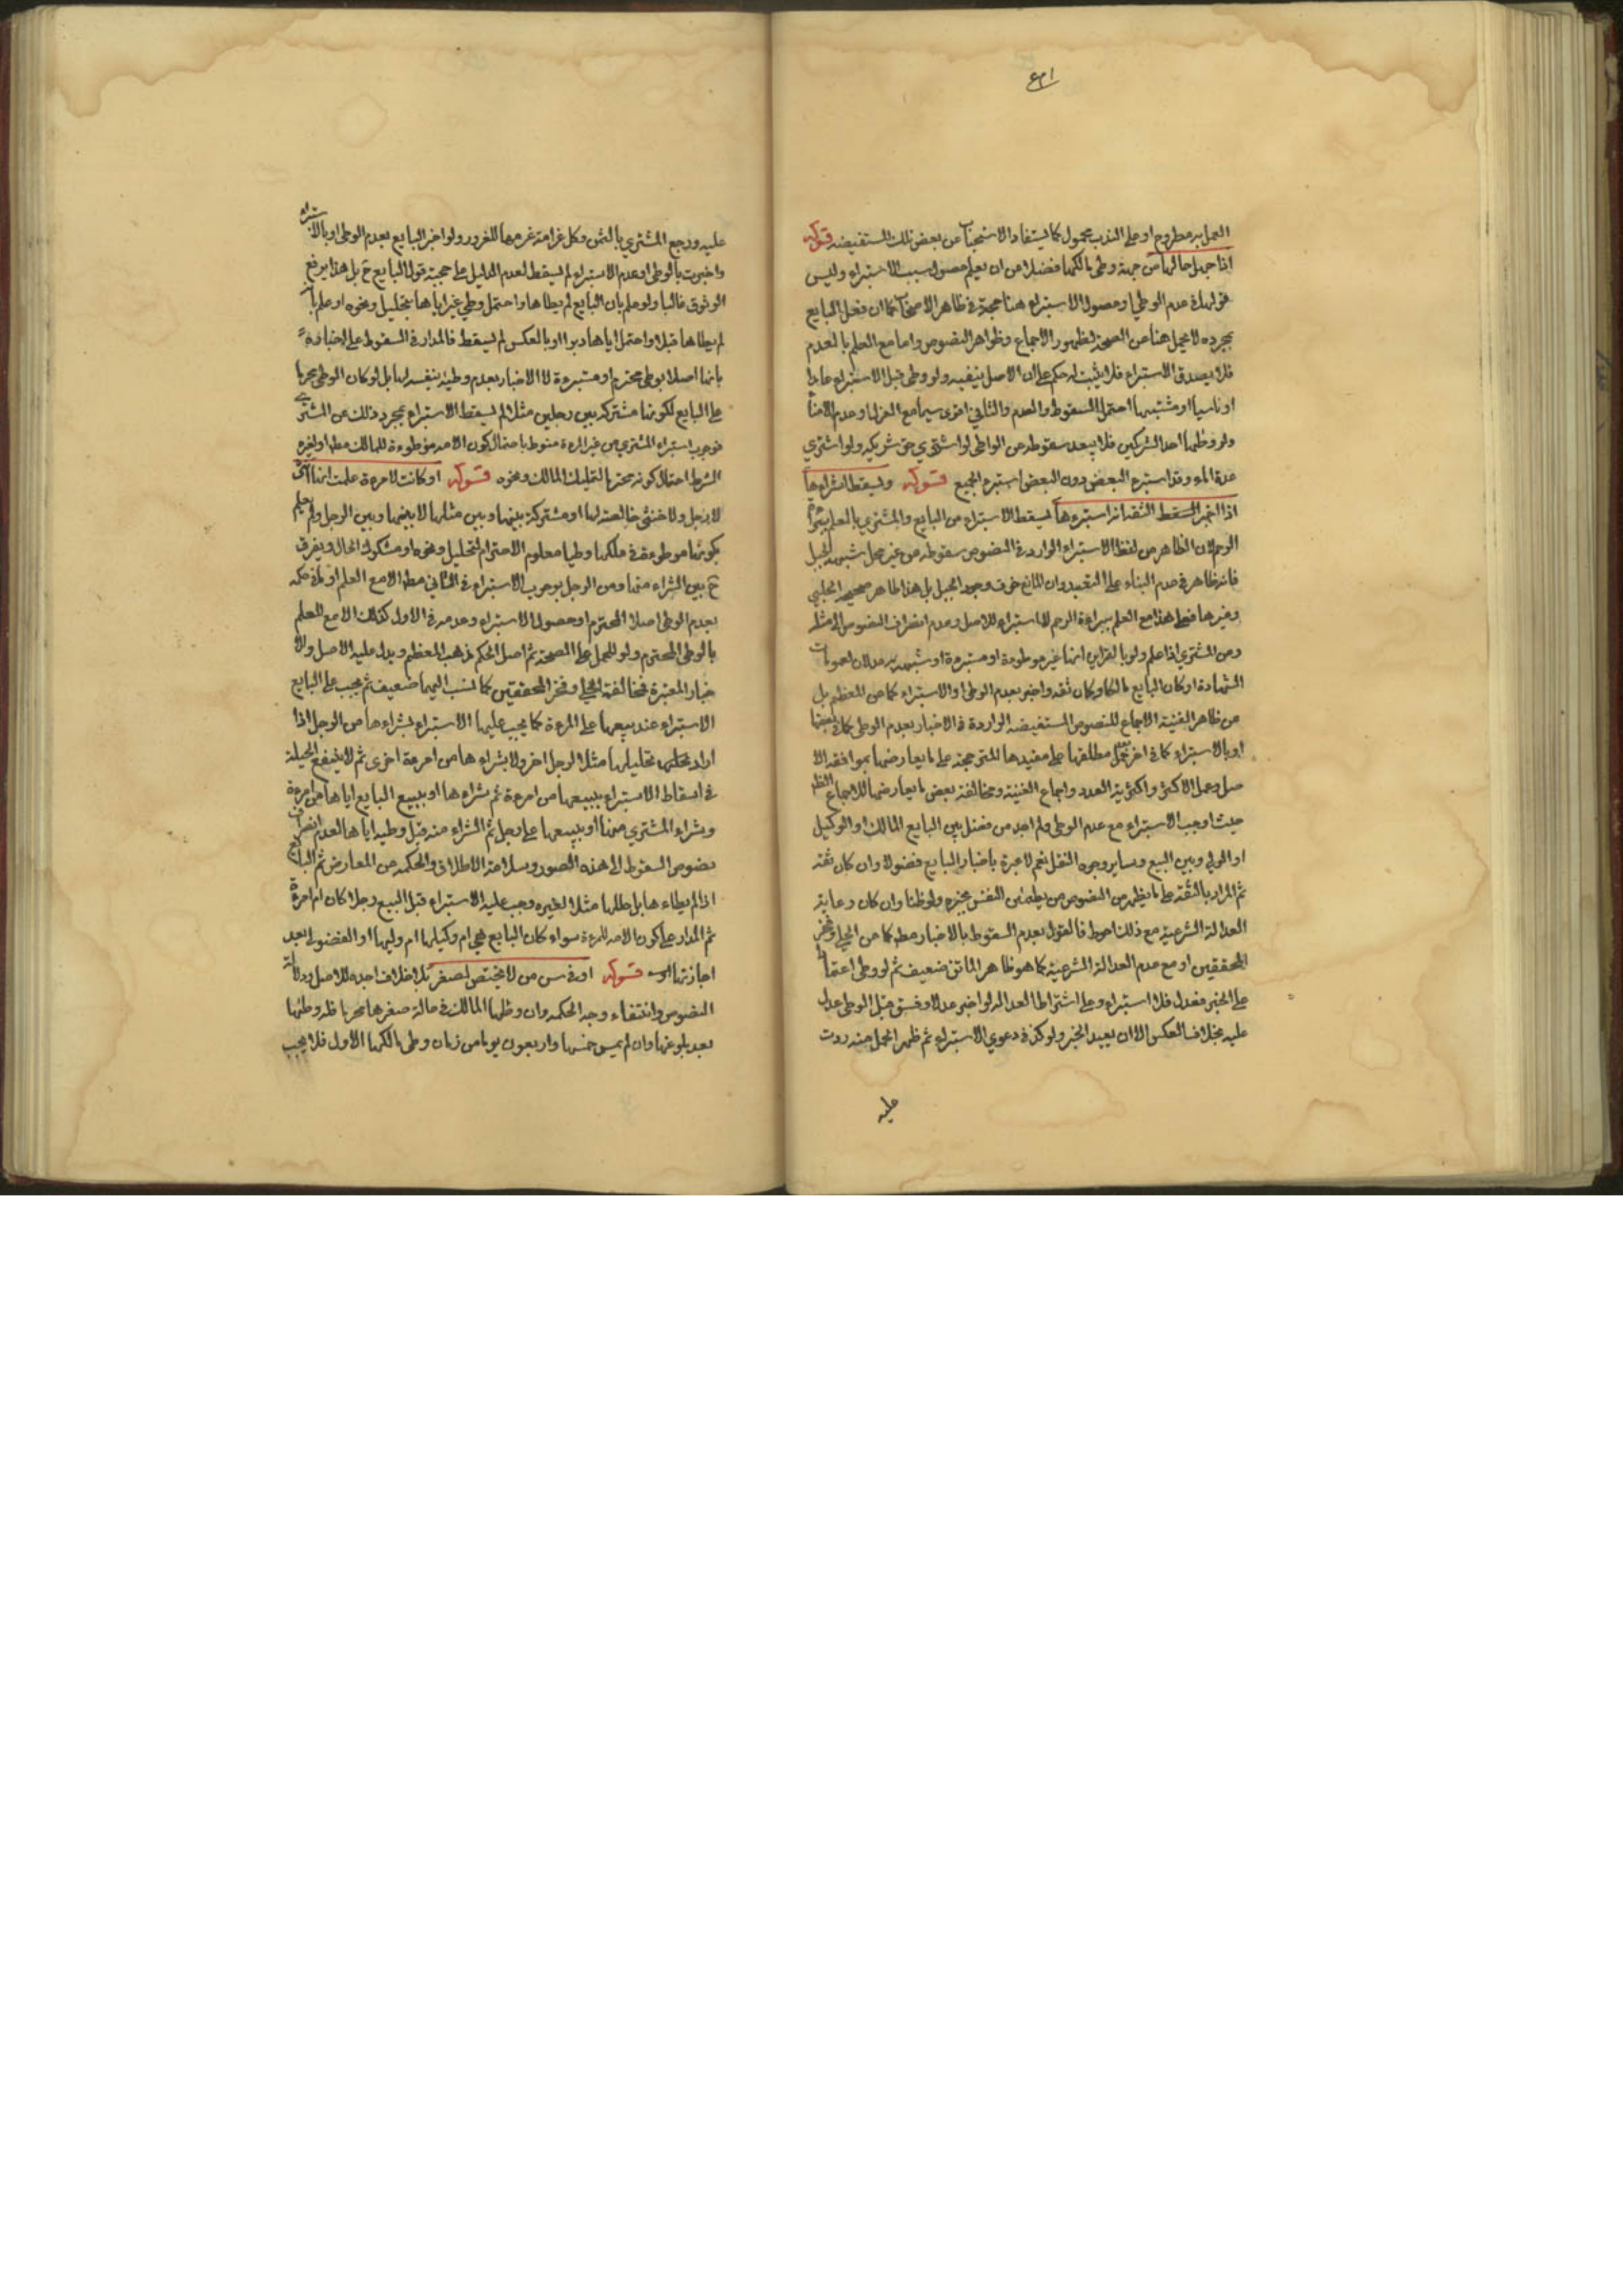 العمل به مطروح او على الندب محمول كما يستفاد الاستحباب من بعض تلك المستفيضه قوله
اذا جهل حالها من جهة وطى مالكها فضلا من ان يعلم حصول سبب الاستبراء وليس
قولها فى عدم الوطى او حصول الاستبراء هنا حجة فى ظاهر الاصحاب كما ان فعل البايع
بمجرده لا يحمل هنا على الصحة لظهور الاجماع وظواهر النصوص واما مع العلم بالعدم
فلا يصدق الاستبراء فلا يثبت له حكم على ان الاصل ينفيه ولو وطى قبل الاستبراء عامدا
او ناسيا او مشتبها احتمل السقوط والعدم والثانى اقوى سيما مع العزل وعدم الامناء
ولو وطئها احد الشركين فلا يبعد سقوطه عن الواطى لو اشترى حق شريكه ولو اشترى
عدة اماء وقد استبرء البعض دون البعض استبرء الجميع قوله ويسقط استبراءها
اذا اخبر الثقه انه استبرءها يسقط الاستبراء من البايع والمشترى بالعلم ببراءة
الرحم لان الظاهر من لفظ الاستبراء الوارد فى النصوص سقوطه من غير محل شبهة الحبل
فانه ظاهر فى عدم البناء على التعبد وان المانع خوف وجود الحبل بل هذا ظاهر صحيحة الحلبى
وغيرها فيسقط هذا مع العلم ببراءة الرحم بلا استبراء للاصل وعدم انصراف النصوص الى مثله
ومن المشترى اذا علم ولو بالقراين انها غير موطوءة او مستبرءة او شهد به عدلان لعمومات
الشهادة او كان البايع مالكا وكان ثقه واخبر بعدم الوطى او الاستبراء كما عن المعظم بل
عن ظاهر الغنية الاجماع للنصوص المستفيضه الواردة فى الاخبار بعدم الوطى كما فى بعضها
او بالاستبراء كما فى اخر يحمل مطلقها على مقيدها المترجحة على ما يعارضها بموافقة الا
صل وعمل الاكثر واكثرية العدد واجماع الغنية ومخالفة بعض ما يعارضها للاجماع الظ
حيث اوجب الاستبراء مع عدم الوطى ولم اجد من فصل بين البايع المالك او الوكيل
او الولى وبين البيع وساير وجوه النقل نعم لا عبرة باخبار البايع فضولا وان كان ثقه
ثم المراد بالثقه على ما يظهر من النصوص من يطمئن النفس بخبره ولو ظنا وان كان رعاية
العدالة الشرعية مع ذلك احوط فالقول بعدم السقوط بالاخبار مطلقا كما عن الحلى وفخر
المحققين او مع عدم العدالة الشرعية كما هو ظاهر الماتن ضعيف ثم لو وطى اعتمادا
على الخبر فعدل فلا استبراء وعلى اشتراط العداله لو اخبر عدلا وفسق قبل الوطى عدل
عليه بخلاف العكس الا ان يعيد الخبر ولو كذب فى دعوى الاستبراء ثم ظهر الحمل منه ردت
عليه
عليه ورجع المشترى بالثمن وكل غرامة غرمها للغرور ولو اخبر البايع بعدم الوطى او بالاستبراء
واخبرت بالوطى او عدم الاستبراء لم يسقط لعدم الدليل على حجية قول البايع ح بل هذا يرفع
الوثوق غالبا ولو علم بان البايع لم يطاها واحتمل وطى غيره اياها بتحليل ونحوه او علم بان
لم يطاها قبلا واحتمل اياها دبرا او بالعكس لم يسقط فالمدار فى السقوط على اخباره
بانها اصلا بوطى محترم او مستبرءة لا الاخبار بعدم وطيه بنفسه لها بل لو كان الوطى محرما
على البايع لكونها مشتركه بين رجلين مثلا لم يسقط الاستبراء بمجرد ذلك عن المشترى
فوجوب استبراء المشترى من غير المرءة منوط باحتمال كون الامه موطوءة للمالك مطلقا او لغيره
الشرط احتمال كونه محترما لتمليك المالك ونحوه قوله او كانت لامرءة علمت انها
لا لرجل ولا خنثى خالصة لها او مشتركة بينها وبين مثلها لا بينها وبين الرجل ولم يعلم
بكونها موطوءة فى ملكها وطيا معلوم الاحترام لتحليل ونحوه او مشكوك الحال ويفرق
ح بين الشراء منها ومن الرجل بوجوب الاستبراء فى الثانى مطلقا الا مع العلم او ما فى حكمه
بعدم الوطى اصلا المحترم او حصول الاستبراء وعدمه فى الاول كذلك الا مع العلم
بالوطى المحترم ولو للحمل على الصحة ثم اصل الحكم مذهب المعظم ويدل عليه الاصل والا
خبار المعتبرة فمخالفة الحلى وفخر المحققين كما نسب اليهما ضعيف ثم يجب على البايع
الاستبراء عند بيعها على المرءة كما يجب عليها الاستبراء بشراءها من الرجل اذا
اراد تحليلها مثلا لرجل اخر ولا بشراءها من امرءة اخرى ثم لا ينفع الحيلة
فى اسقاط الاستبراء ببيعها من امرءة ثم شراءها او ببيع البايع اياها من امرءة
وشراء المشترى منها او ببيعها على رجل ثم الشراء منه قبل وطيه اياها لعدم انصراف
نصوص السقوط الى هذه الصور وسلامة الاطلاق والحكمه عن المعارض ثم البايع
اذا لم يطاءها بل حللها مثلا لغيره وجب عليه الاستبراء قبل البيع رجلا كان ام امرءة
ثم المدار على كون الامه للمرءة سواء كان البايع هى ام وكيلها ام وليها او الفضولى بعد
اجازتها قوله او فى سن من لا تحيض لصغر بلا خلاف اجده للاصل ودلالة
النصوص وانتفاء وجه الحكمه وان وطئها المالك فى حالة صغرها محرما فله وطئها
بعد بلوغها وان لم يمض خمسة واربعون يوما من زمان وطى مالكها الاول فلا يجب